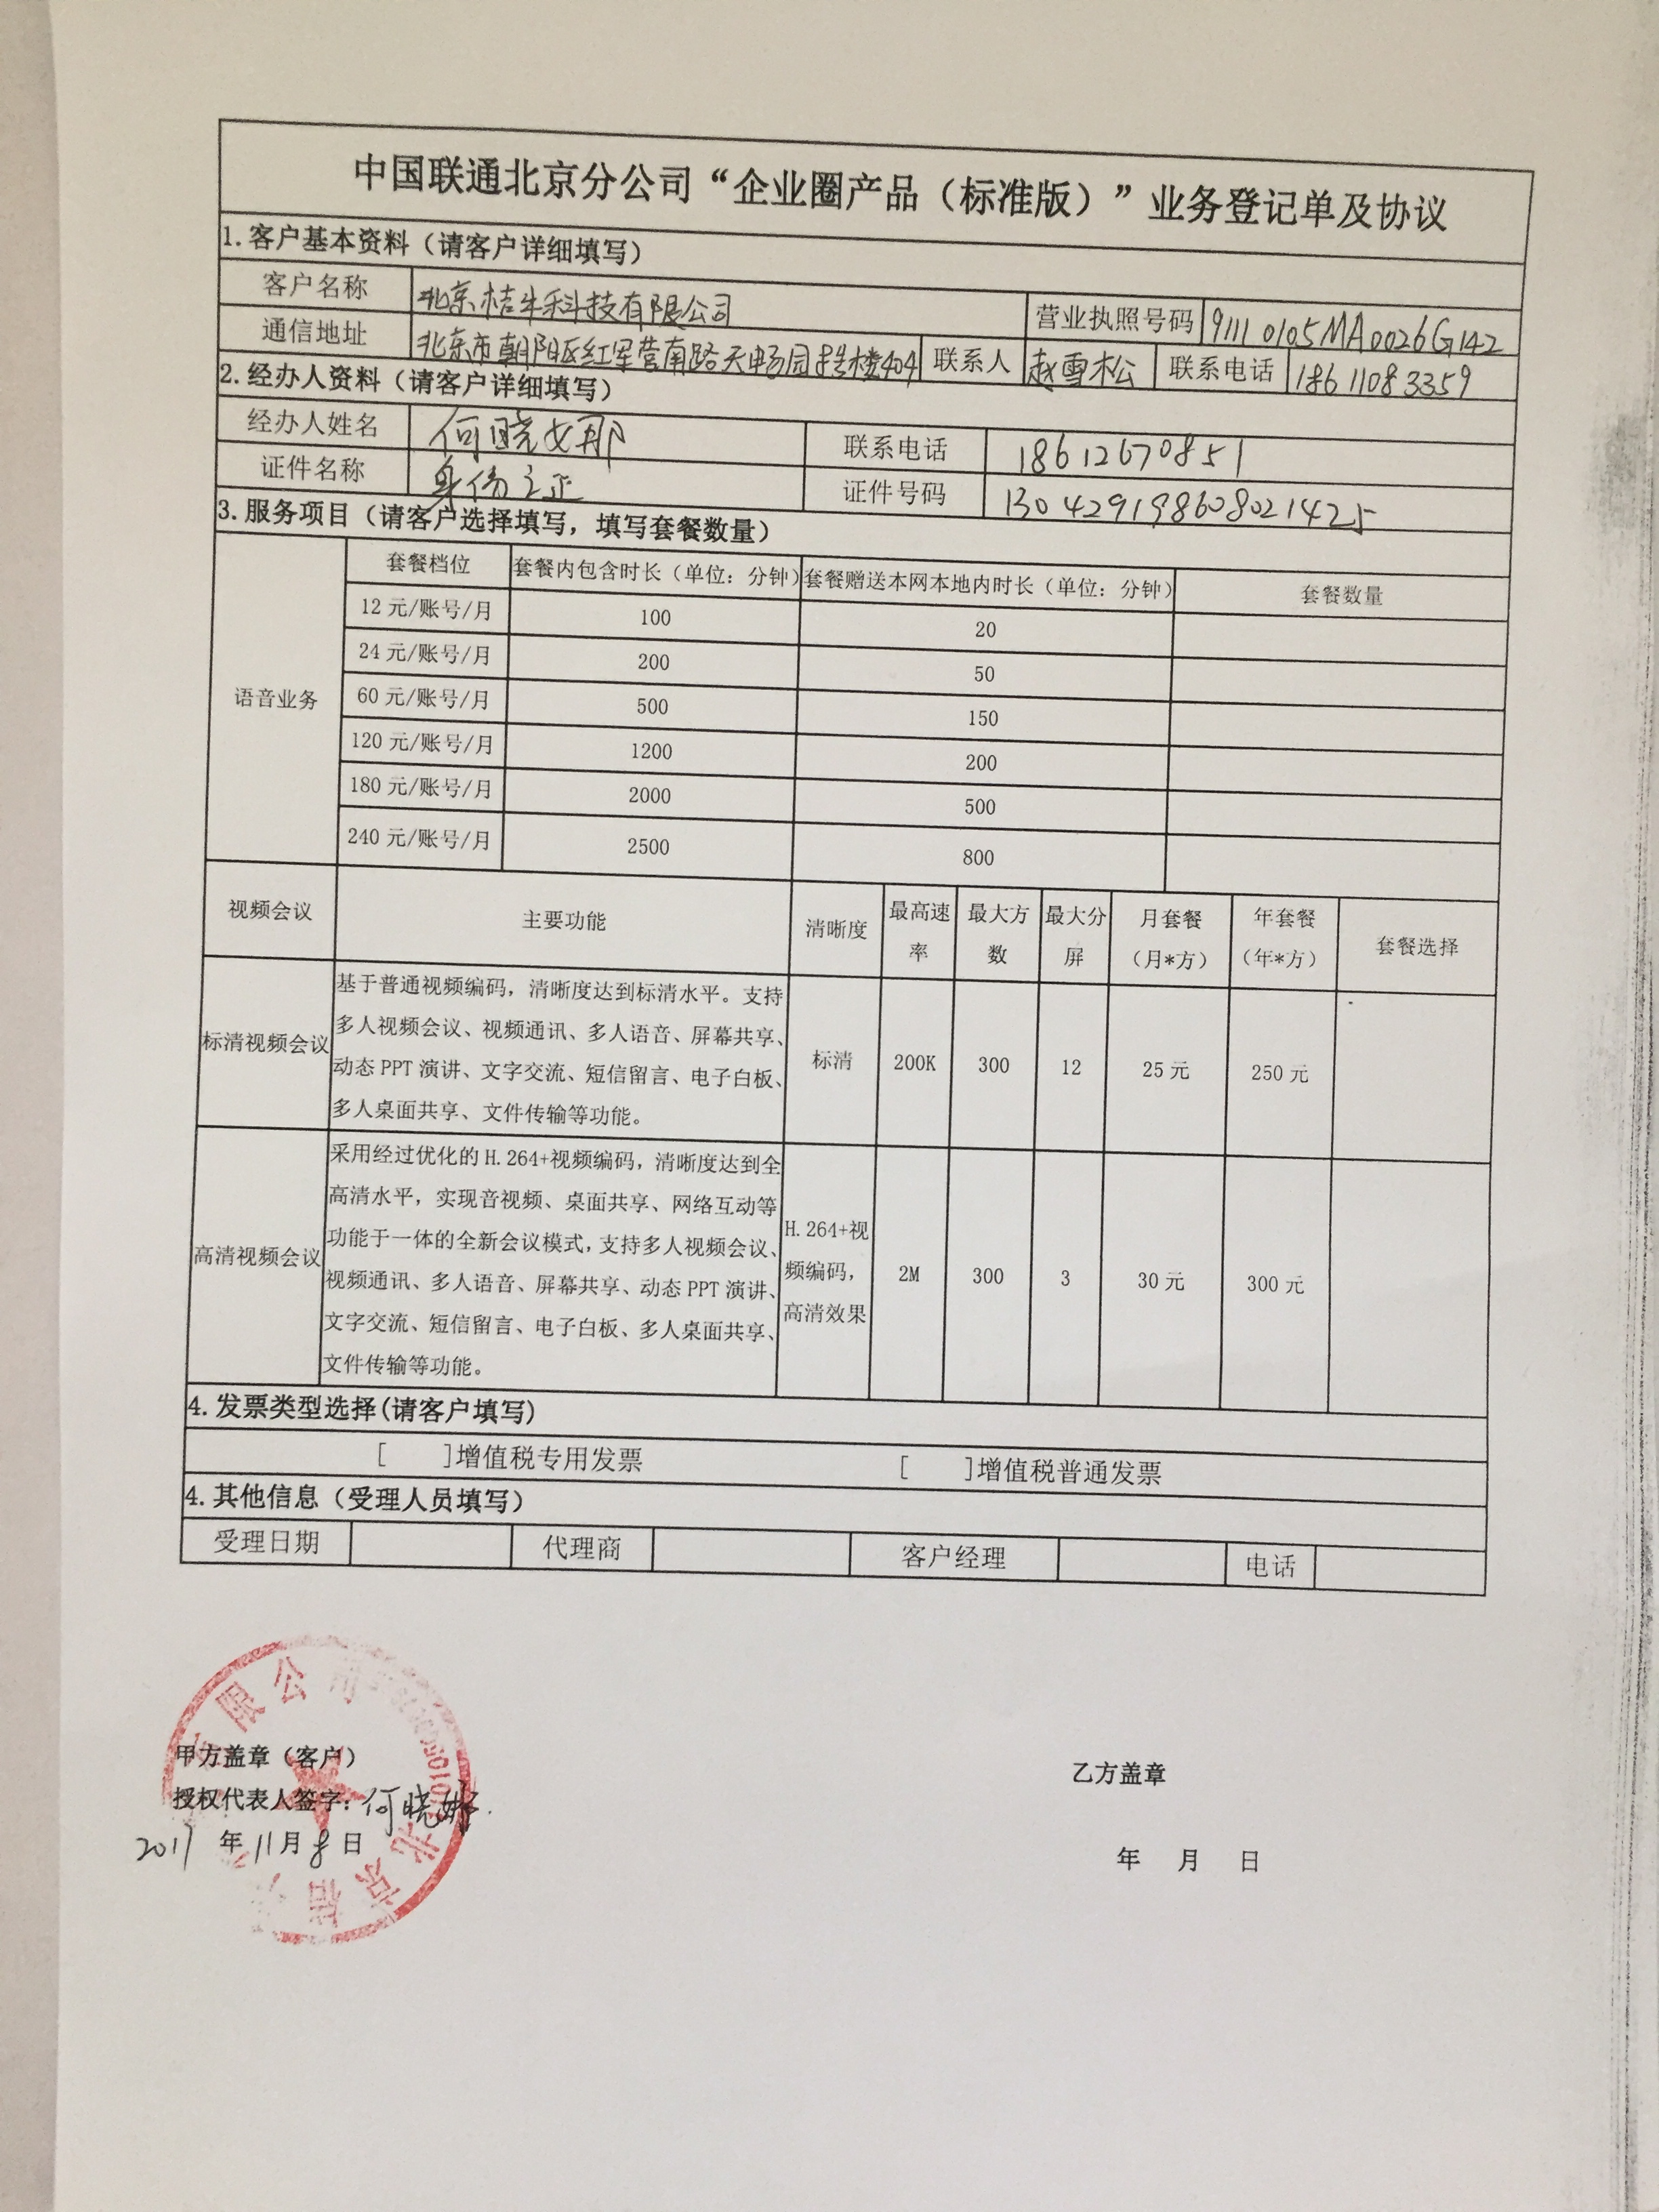 中国联通北京分公司“企业圈产品（标准版）”业务登记单及协议
1.客户基本资料（请客户详细填写）
客户名称 北京桔牛科技有限公司 营业执照号码 91110105MA0026G142
通信地址 北京市朝阳区红军营南路天畅园 楼404 联系人 赵雪松 联系电话 18611083359
2.经办人资料（请客户详细填写）
经办人姓名 何晓娜 联系电话 18612670851
证件名称 身份证 证件号码 130429198608021425
3.服务项目（请客户选择填写，填写套餐数量）
语音业务
套餐档位 套餐内包含时长（单位：分钟） 套餐赠送本网本地内时长（单位：分钟） 套餐数量
12元/账号/月 100 20
24元/账号/月 200 50
60元/账号/月 500 150
120元/账号/月 1200 200
180元/账号/月 2000 500
240元/账号/月 2500 800
视频会议 主要功能 清晰度 最高速率 最大方数 最大分屏 月套餐（月*方） 年套餐（年*方） 套餐选择
标清视频会议
基于普通视频编码，清晰度达到标清水平。支持
多人视频会议、视频通讯、多人语音、屏幕共享、
动态PPT演讲、文字交流、短信留言、电子白板、
多人桌面共享、文件传输等功能。
标清 200K 300 12 25元 250元
高清视频会议
采用经过优化的H.264+视频编码，清晰度达到全
高清水平，实现音视频、桌面共享、网络互动等
功能于一体的全新会议模式，支持多人视频会议、
视频通讯、多人语音、屏幕共享、动态PPT演讲、
文字交流、短信留言、电子白板、多人桌面共享、
文件传输等功能。
H.264+视
频编码，
高清效果
2M 300 3 30元 300元
4.发票类型选择(请客户填写)
[ ]增值税专用发票 [ ]增值税普通发票
4.其他信息（受理人员填写）
受理日期 代理商 客户经理 电话
甲方盖章（客户） 乙方盖章
授权代表人签字：何晓娜
2017年11月8日 年 月 日